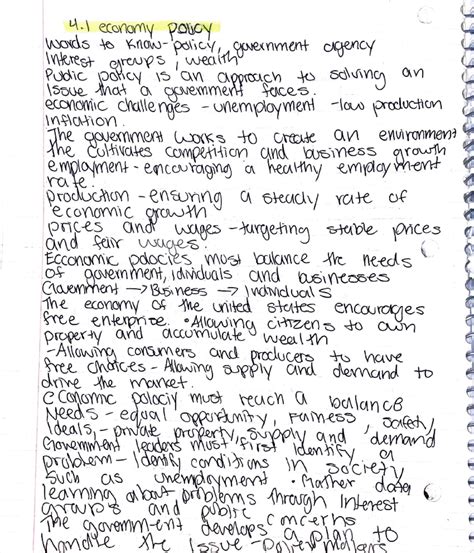 4.1 economy policy
Words to know - policy, government agency
Interest groups, wealth
Public policy is an approach to solving an
Issue that a government faces.
economic challenges - unemployment - low production
Inflation.
The government works to create an environment
the cultivates competition and business growth
employment - encouraging a healthy employment
rate.
production - ensuring a steady rate of
economic growth
prices and wages - targeting stable prices
and fair wages.
Ecconomic polocies most balance the needs
of government, idividuals and businesses
Government → Business → Individuals
The economy of the united states encourages
free enterprize. • Allowing citizens to own
property and accumulate wealth
- Allowing consumers and producers to have
free choices - Allowing supply and demand to
drive the market.
economic polociy must reach a balance
Needs - equal opportunity, Fairness, safety
Ideals, - private property, supply and demand
Government leaders must first Identify a
problem - Identify conditions in society
such as unemployment • Mather data
learning about problems through Interest
groups and public concerns
The government develops a plan to
handle the Issue - Policy makers